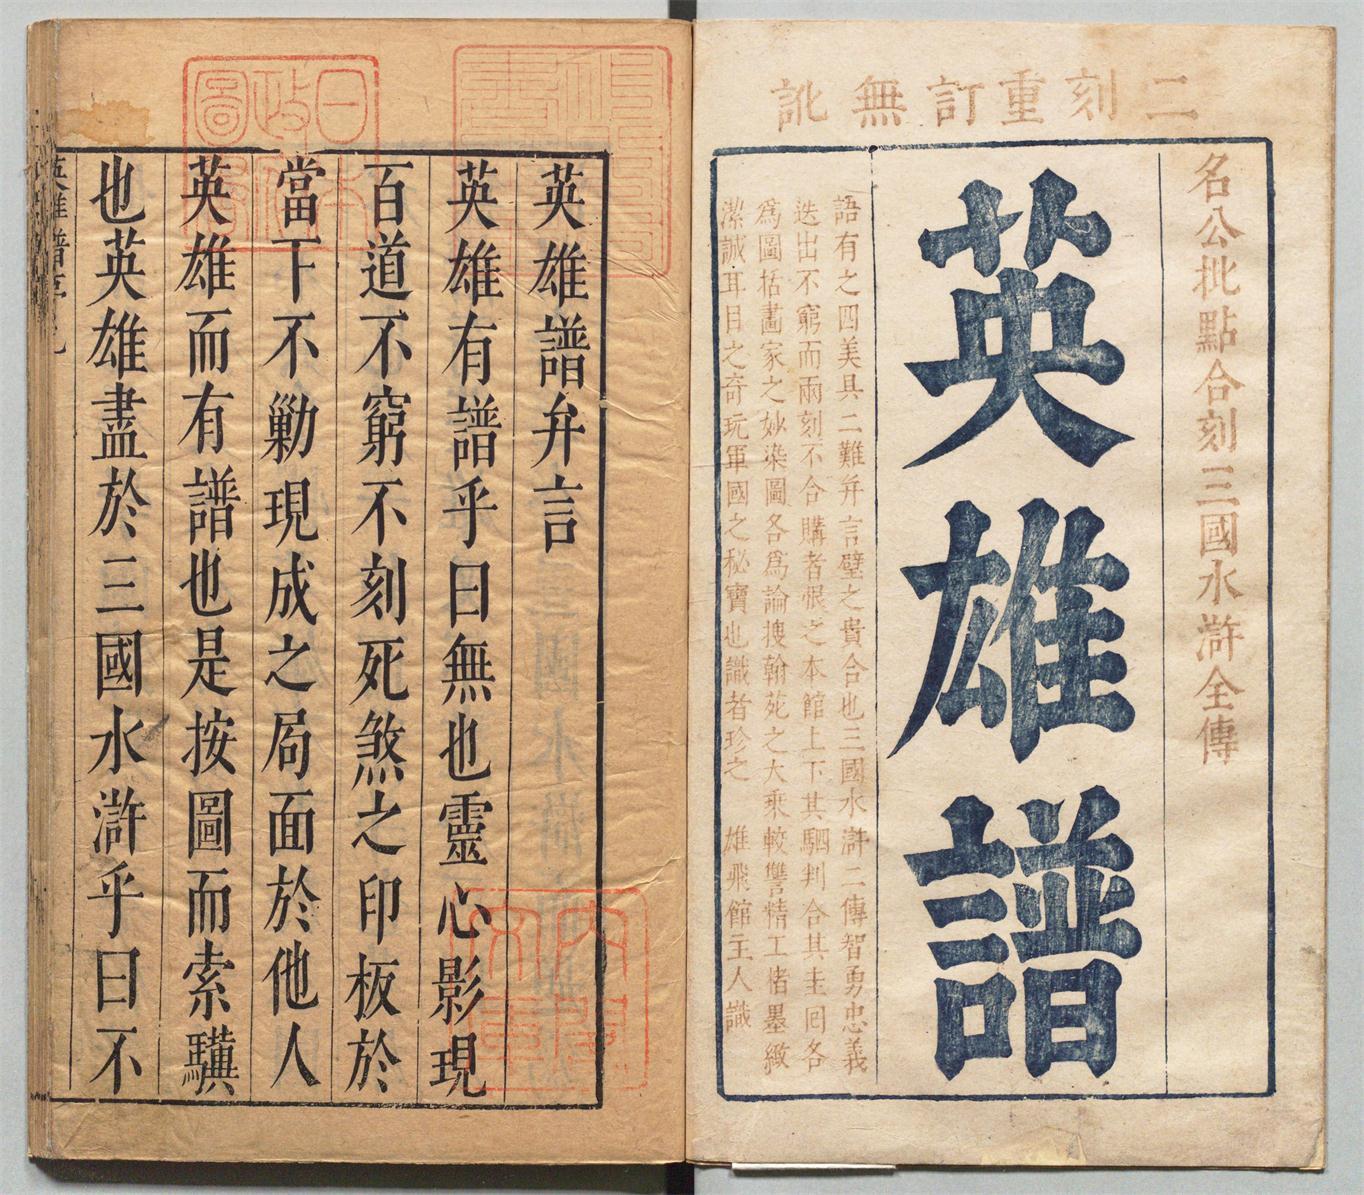 二刻重訂無訛
名公批點合刻三國水滸全傳
英雄譜
語有之四美具二難弁言璧之貴合也三國水滸二傳智勇忠義
迭出不窮而兩刻不合購者恨之本館上下其駟判合其圭回各
爲圖括畫家之妙染圖各爲論搜翰苑之大乘較讐精工楮墨緻
潔誠耳目之奇玩軍國之秘寶也識者珍之 雄飛館主人識
英雄譜弁言
英雄有譜乎曰無也靈心影現
百道不窮不刻死煞之印板於
當下不勦現成之局面於他人
英雄而有譜也是按圖而索驥
也英雄盡於三國水滸乎曰不
英雄譜
日本政府圖書
內閣文庫